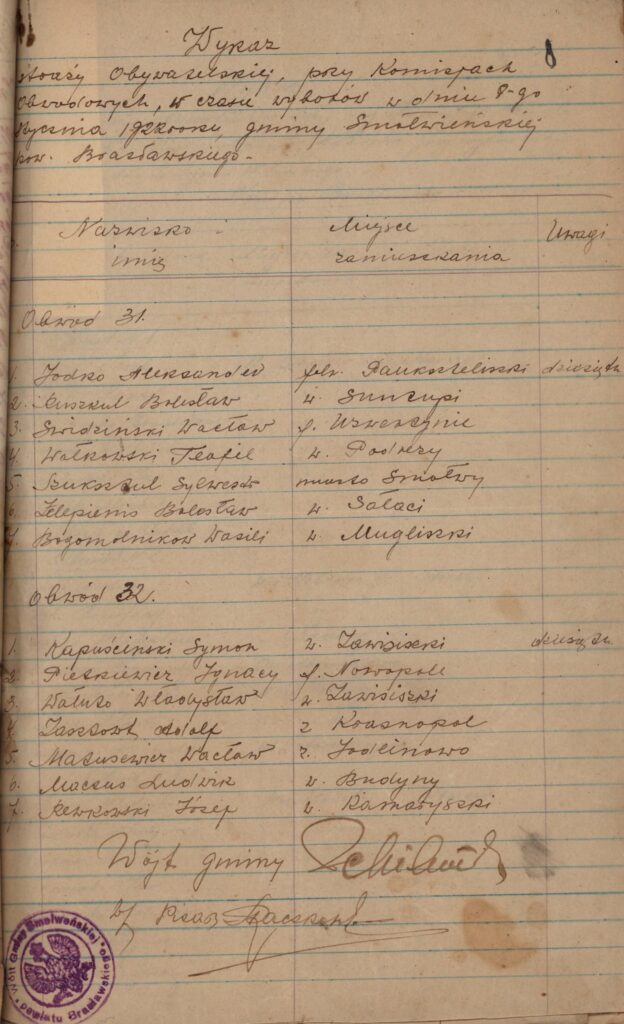 8
Wykaz
straży Obywatelskiej, przy Komisjach
Obwodowych, w czasie wyborów w dniu 8-go
stycznia 1922 roku, gminy Smołwieńskiej
pow. Brasławskiego.-
Nazwisko i imię | Miejsce zamieszkania | Uwagi
Obwód 31.
1. Jodko Aleksander folw. Paukszteliszki dziesiętn.
2. Puszkul Bolesław w. Sunczupi
3. Świdziński Wacław f.
4. Wałkowski Teofil w. Podrezy
5. Szuksztul Sylwestr miasto Smołwy
6. Zelepienis Bolesław w. Sałaci
7. Bogomolnikow Wasili w. Mugliszki
Obwód 32.
1. Kapuściński Symon w. Zawisiszki dziesiętn.
2. Pietkiewicz Ignacy f. Nowopole
3. Wałujto Władysław w. Zawisiszki
4. Jasztowt Adolf z Krasnopol
5. Matusewicz Wacław z. Jodlinowo
6. Maczus Ludwik w. Budyny
7. Rewkowski Józef w. Kamaryszki
Wójt gminy
Pisarz
Wójt Gminy Smołweńskiej
powiatu Brasławskiego